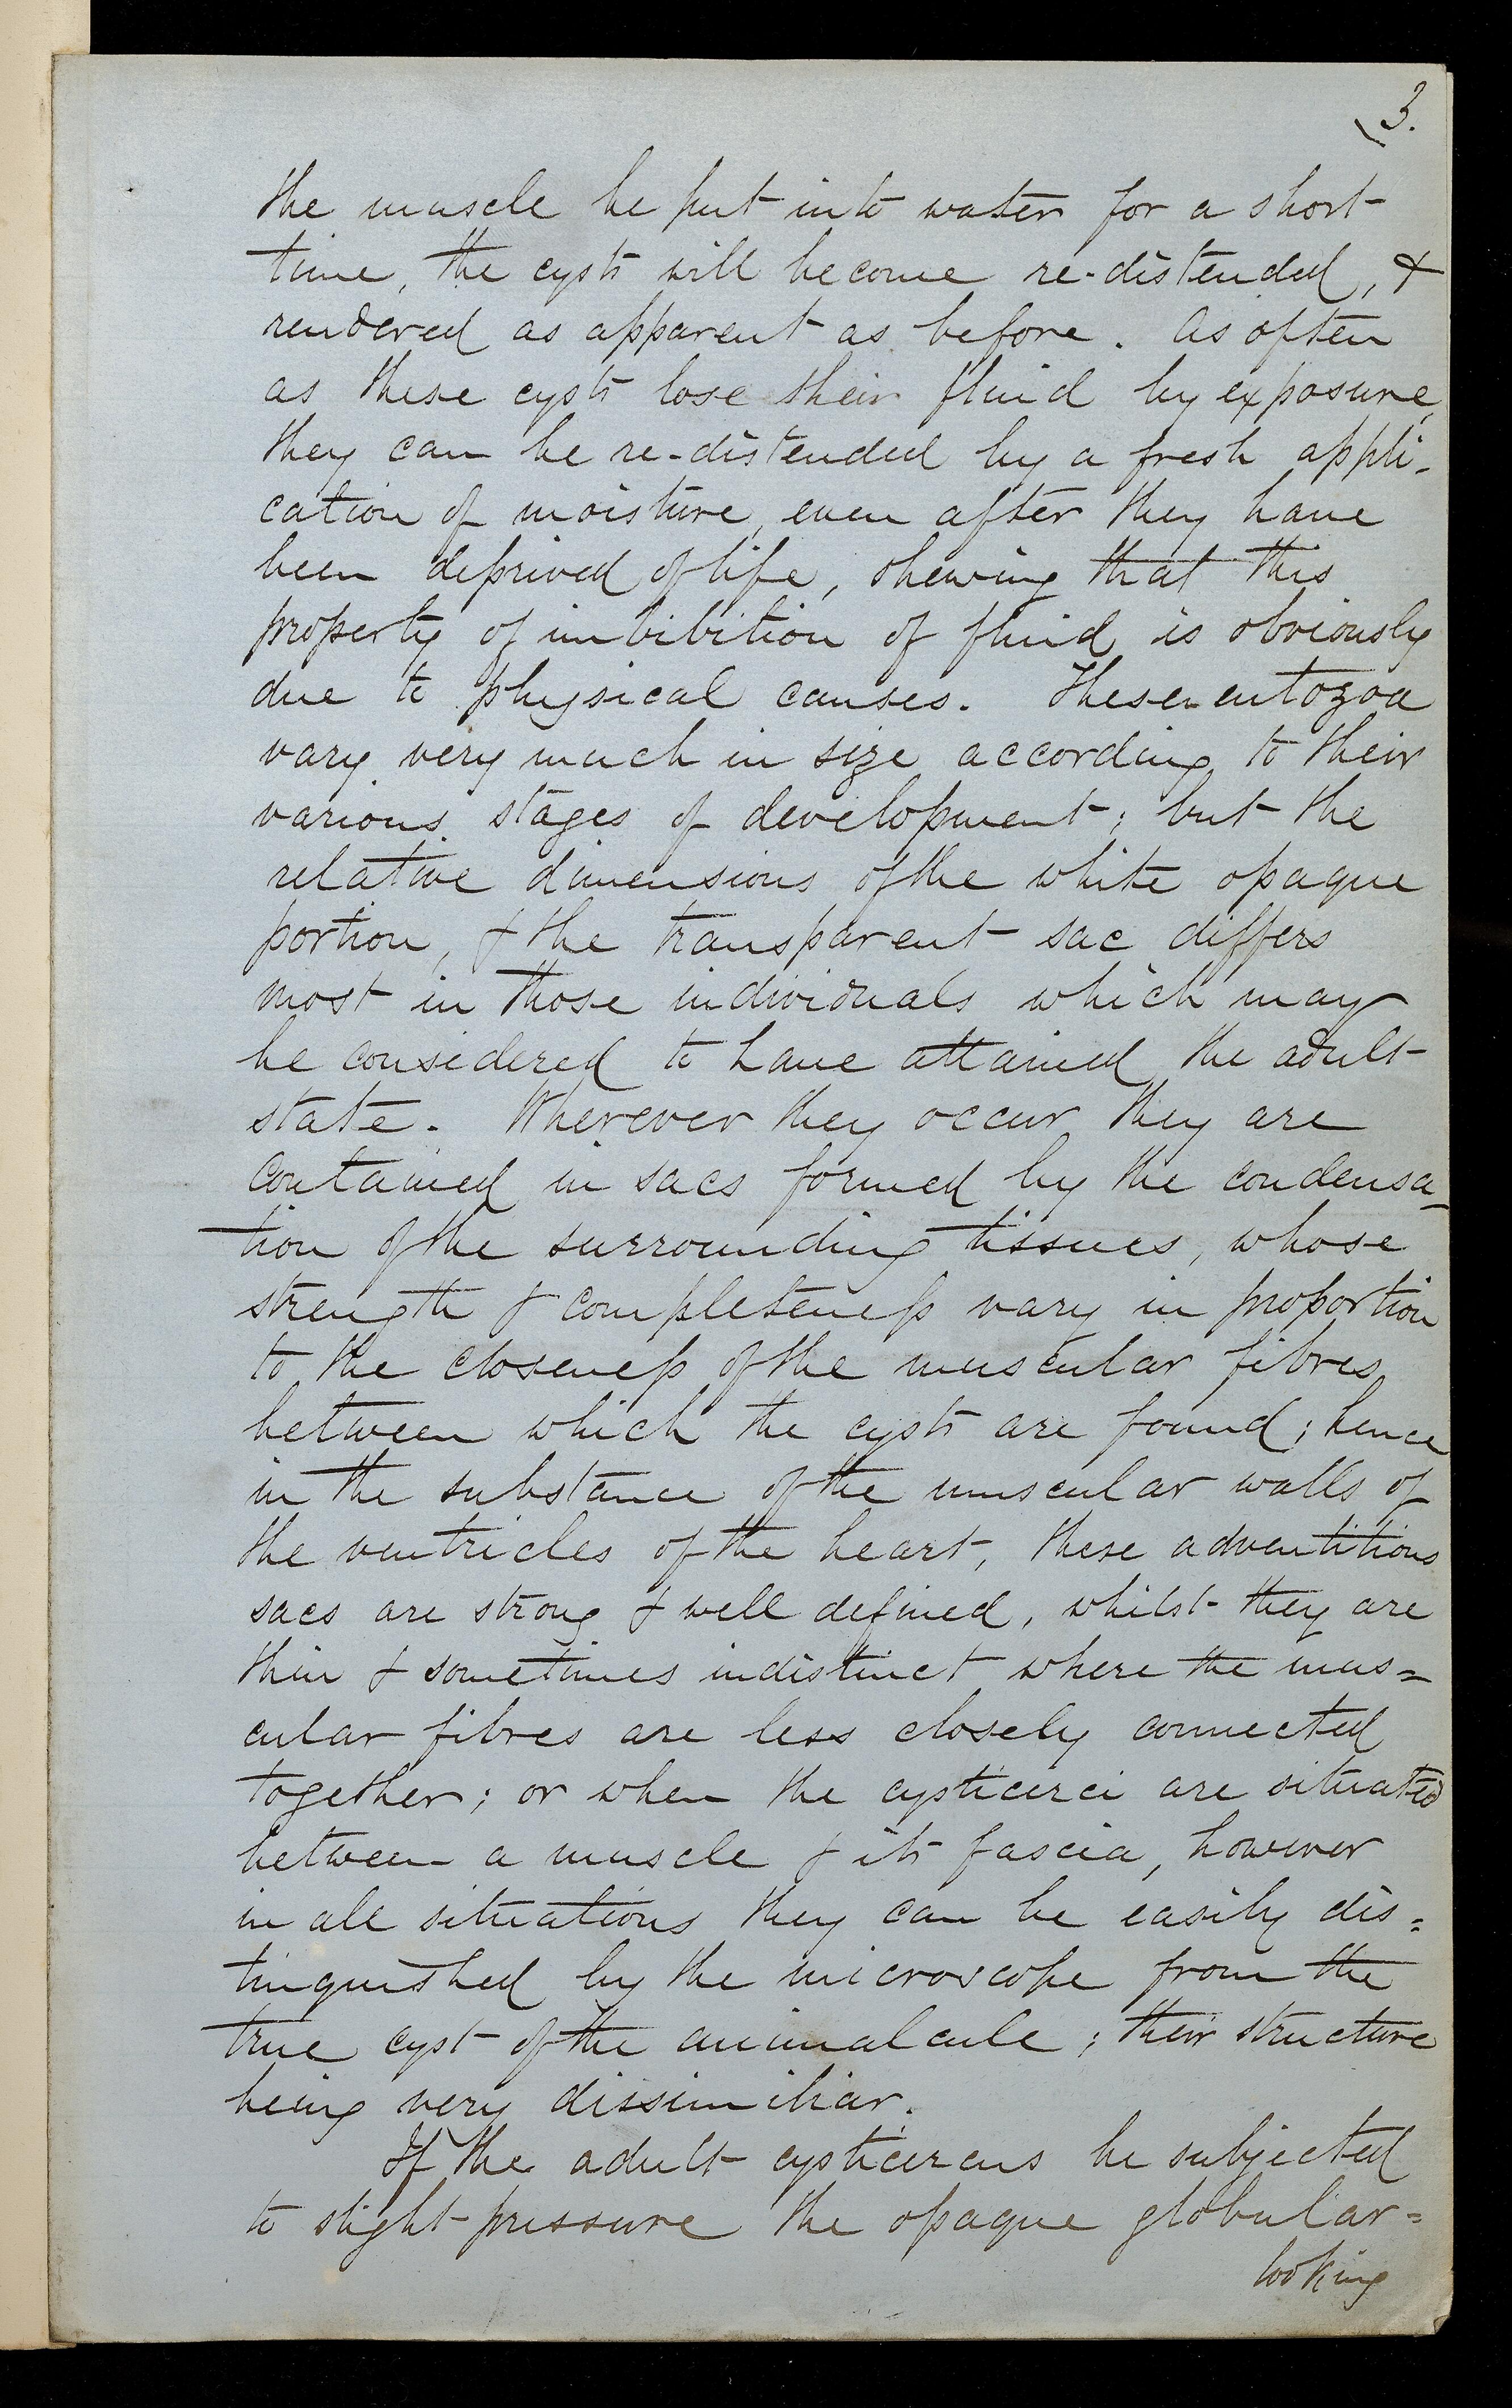 3.
the muscle be put into water for a short
time, the cysts will become re-distended, &
rendered as apparent as before. As often
as these cysts lose their fluid by exposure,
they can be re-distended by a fresh appli-
cation of moisture, even after they have
been deprived of life, shewing that this
property of imbibition of fluid is obviously
due to physical causes. These entozoa
vary very much in size according to their
various stages of development; but the
relative dimensions of the white opaque
portion, & the transparent sac differs
most in those individuals which may
be considered to have attained the adult
state. Wherever they occur they are
contained in sacs formed by the condensa-
tion of the surrounding tissues, whose
strength & completeness vary in proportion
to the closeness of the muscular fibres
between which the cysts are found; hence
in the substance of the muscular walls of
the ventricles of the heart, these adventitious
sacs are strong & well defined, whilst they are
thin & sometimes indistinct where the mus=
cular fibres are less closely connected
together; or when the cysticerci are situated
between a muscle & its fascia, however
in all situations they can be easily dis=
tinguished by the microscope from the
true cyst of the animalcule; their structure
being very dissimiliar.
If the adult cysticercus be subjected
to slight pressure the opaque globular=
looking